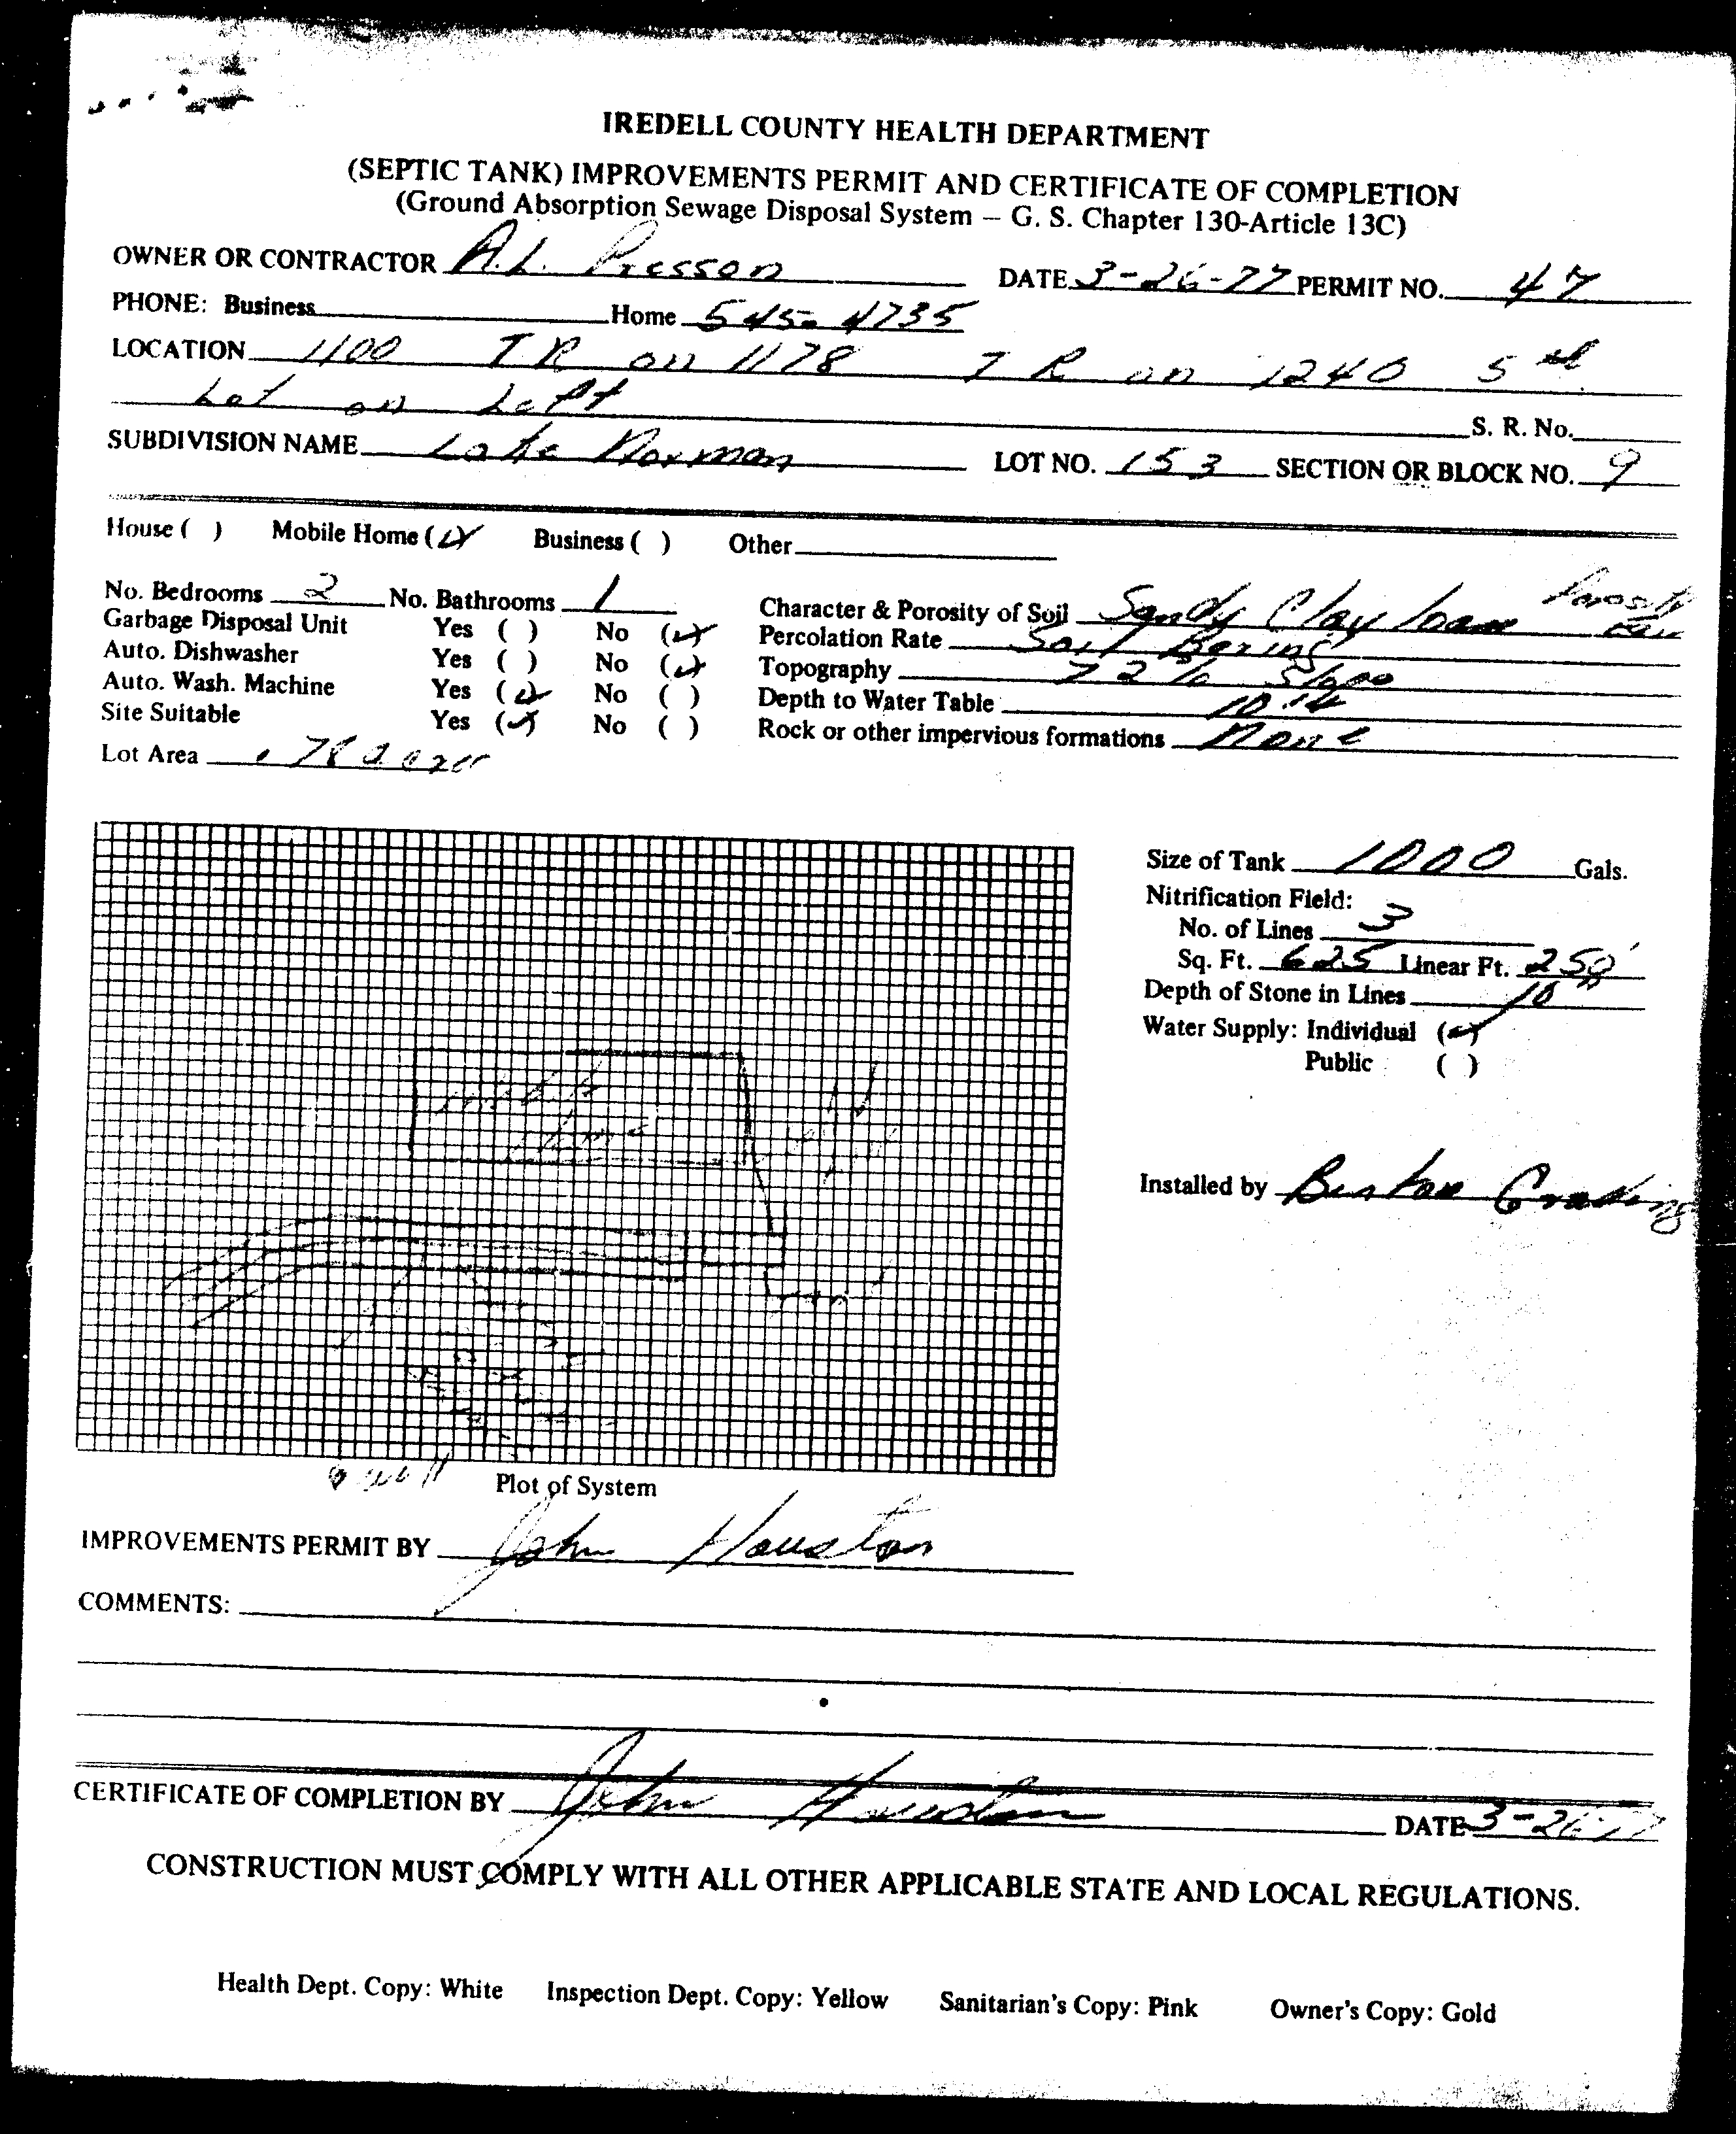 IREDELL COUNTY HEALTH DEPARTMENT
(SEPTIC TANK) IMPROVEMENTS PERMIT AND CERTIFICATE OF COMPLETION
(Ground Absorption Sewage Disposal System – G. S. Chapter 130-Article 13C)
OWNER OR CONTRACTOR A.L. Presson DATE 3-26-77 PERMIT NO. 47
PHONE: Business Home 545-4735
LOCATION 1100 T R on 1178 T R on 1240 5th
Lot on Left S. R. No.
SUBDIVISION NAME Lake Norman LOT NO. 153 SECTION OR BLOCK NO. 9
House ( ) Mobile Home (✓) Business ( ) Other
No. Bedrooms 2 No. Bathrooms 1 Character & Porosity of Soil Sandy Clay loam Porosity
Garbage Disposal Unit Yes ( ) No (✓) Percolation Rate Soil Boring
Auto. Dishwasher Yes ( ) No (✓) Topography 2% Slope
Auto. Wash. Machine Yes (✓) No ( ) Depth to Water Table
Site Suitable Yes (✓) No ( ) Rock or other impervious formations None
Lot Area
Size of Tank 1000 Gals.
Nitrification Field:
No. of Lines 3
Sq. Ft. 625 Linear Ft. 250'
Depth of Stone in Lines 10
Water Supply: Individual (✓)
Public ( )
mobile
home
Installed by Grading
well Plot of System
IMPROVEMENTS PERMIT BY John Houston
COMMENTS:
CERTIFICATE OF COMPLETION BY John Houston DATE 3-26-77
CONSTRUCTION MUST COMPLY WITH ALL OTHER APPLICABLE STATE AND LOCAL REGULATIONS.
Health Dept. Copy: White Inspection Dept. Copy: Yellow Sanitarian's Copy: Pink Owner's Copy: Gold